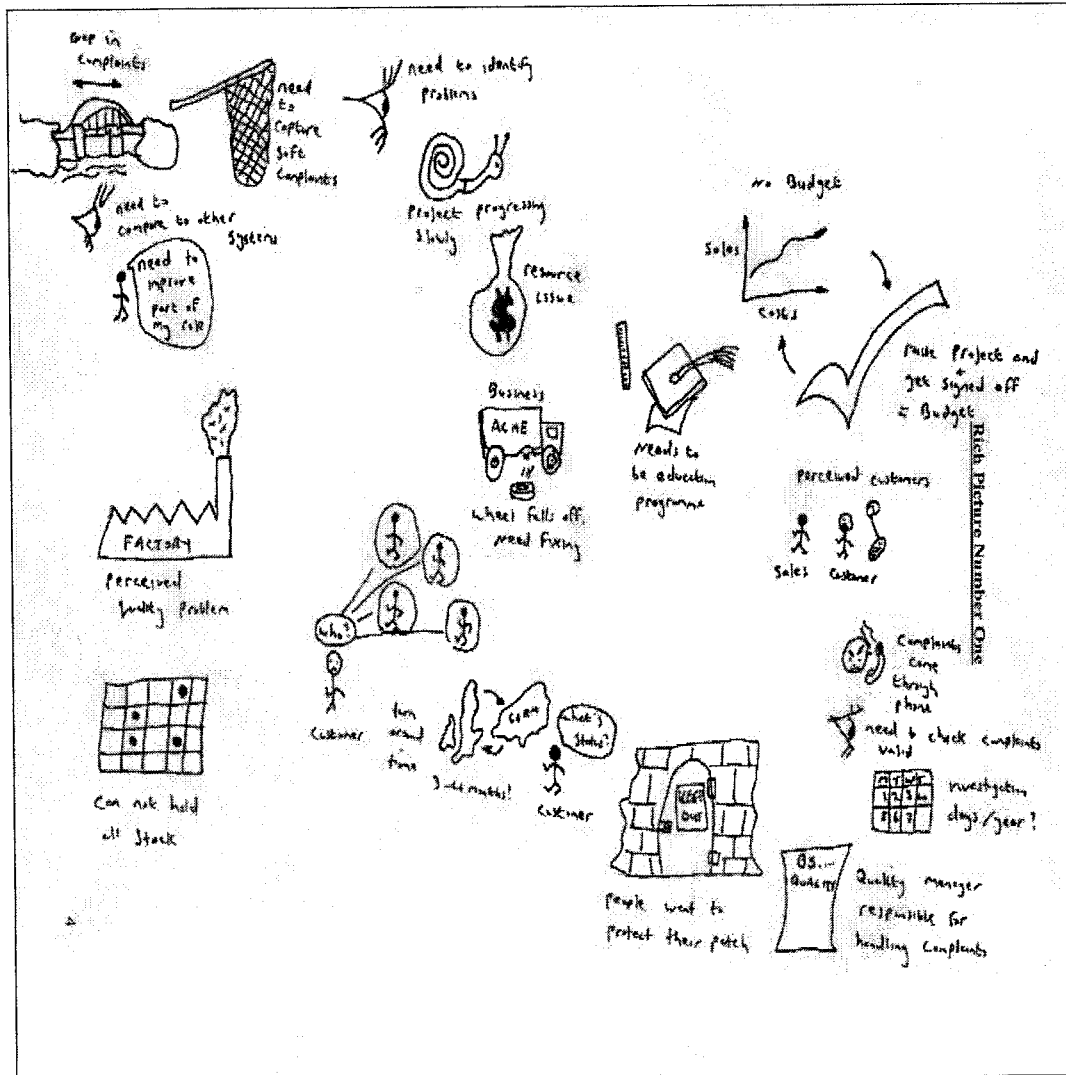 Gap in
Complaints
need
to
capture
soft
complaints
need to identify
problems
need to
compare to other
systems
need to
improve
part of
my role
Project progressing
slowly
resource
issue
$
No Budget
Sales
Costs
push project and
get signed off
Budget
Business
ACME
wheel falls off,
need fixing
Needs to
be education
programme
Rich Picture Number One
perceived customers
Sales
Customer
FACTORY
perceived
quality problem
who?
Customer
Can not hold
all stock
turn
around
time
3 - 4 months!
What's
status?
Customer
Complaints
come
through
phone
need to check complaints
valid
M T W T
investigation
days/year?
KEEP
OUT
people want to
protect their patch
BS...
QUALITY
Quality manager
responsible for
handling complaints